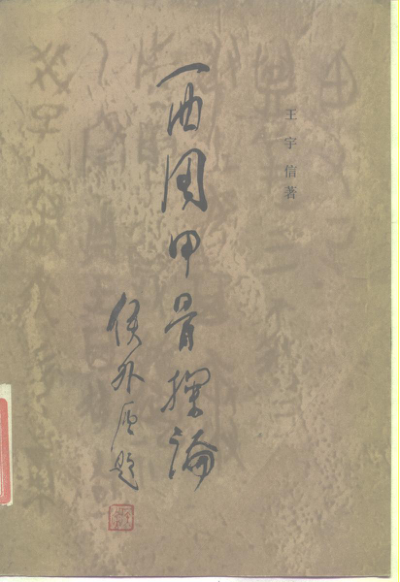 王宇信著
西周甲骨探论
侯外庐题